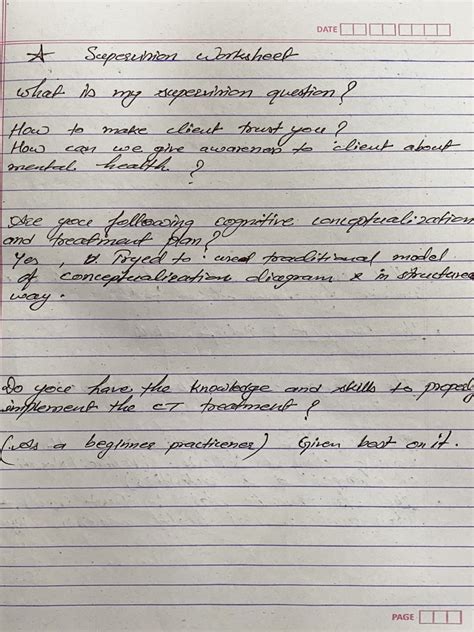 DATE
☆ Supervision Worksheet
What is my supervision question?
How to make client trust you?
How can we give awareness to client about
mental health. ?
Are you following cognitive conceptualization
and treatment plan?
Yes, I tryed to used traditional model
of conceptualization diagram & in structured
way.
Do you have the knowledge and skills to properly
implement the CT treatment?
(as a beginner practicener) Given best on it.
PAGE